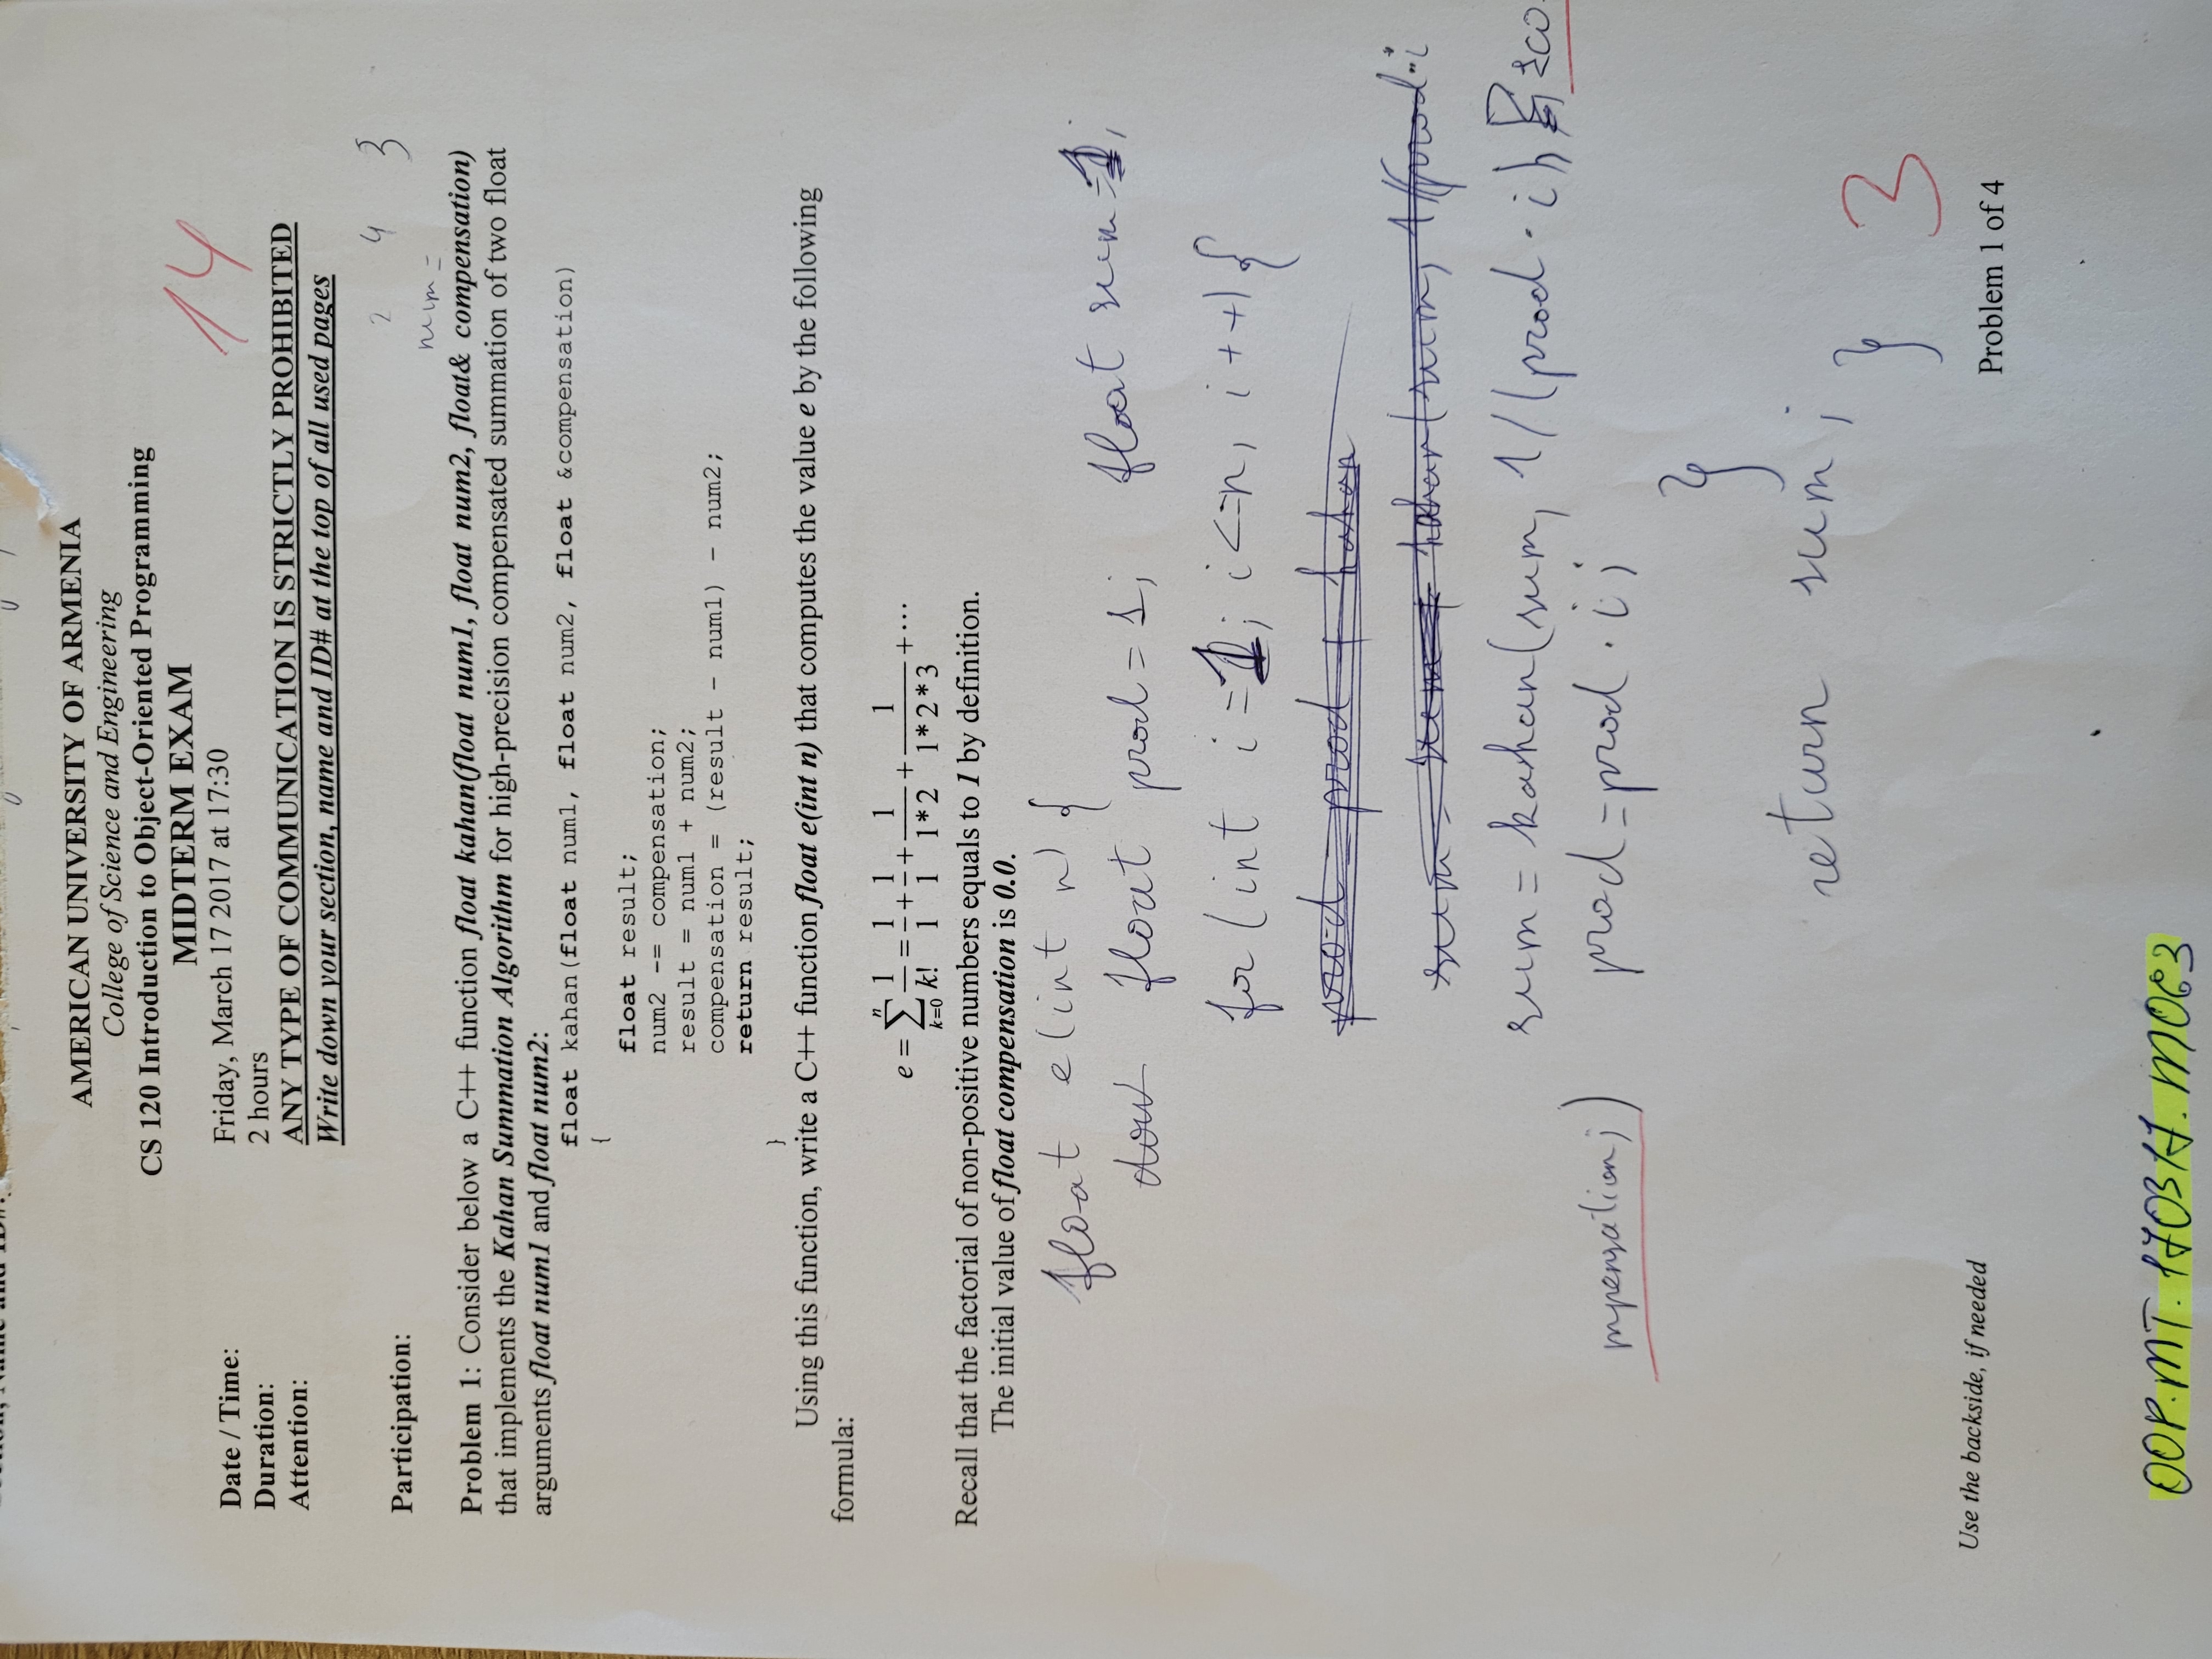 AMERICAN UNIVERSITY OF ARMENIA
College of Science and Engineering
CS 120 Introduction to Object-Oriented Programming
MIDTERM EXAM
14
Date / Time: Friday, March 17 2017 at 17:30
Duration: 2 hours
Attention: ANY TYPE OF COMMUNICATION IS STRICTLY PROHIBITED
Write down your section, name and ID# at the top of all used pages
2 4 3
Participation:
num =
Problem 1: Consider below a C++ function float kahan(float num1, float num2, float& compensation)
that implements the Kahan Summation Algorithm for high-precision compensated summation of two float
arguments float num1 and float num2:
float kahan(float num1, float num2, float &compensation)
{
float result;
num2 -= compensation;
result = num1 + num2;
compensation = (result - num1) - num2;
return result;
}
Using this function, write a C++ function float e(int n) that computes the value e by the following
formula:
e = ∑_{k=0}^{n} 1/k! = 1/1 + 1/1 + 1/(1*2) + 1/(1*2*3) + ⋯
Recall that the factorial of non-positive numbers equals to 1 by definition.
The initial value of float compensation is 0.0.
float e(int n) {
float prod = 1; float sum = 1;
for (int i = 1; i <= n, i++) {
prod = prod + kahan
sum = sum + kahan(sum, 1/(prod · i
sum = kahan(sum, 1/(prod · i), &co
mpensation;) prod = prod · i;
}
return sum;
}
3
Use the backside, if needed
Problem 1 of 4
OOP.MT.170317.M063